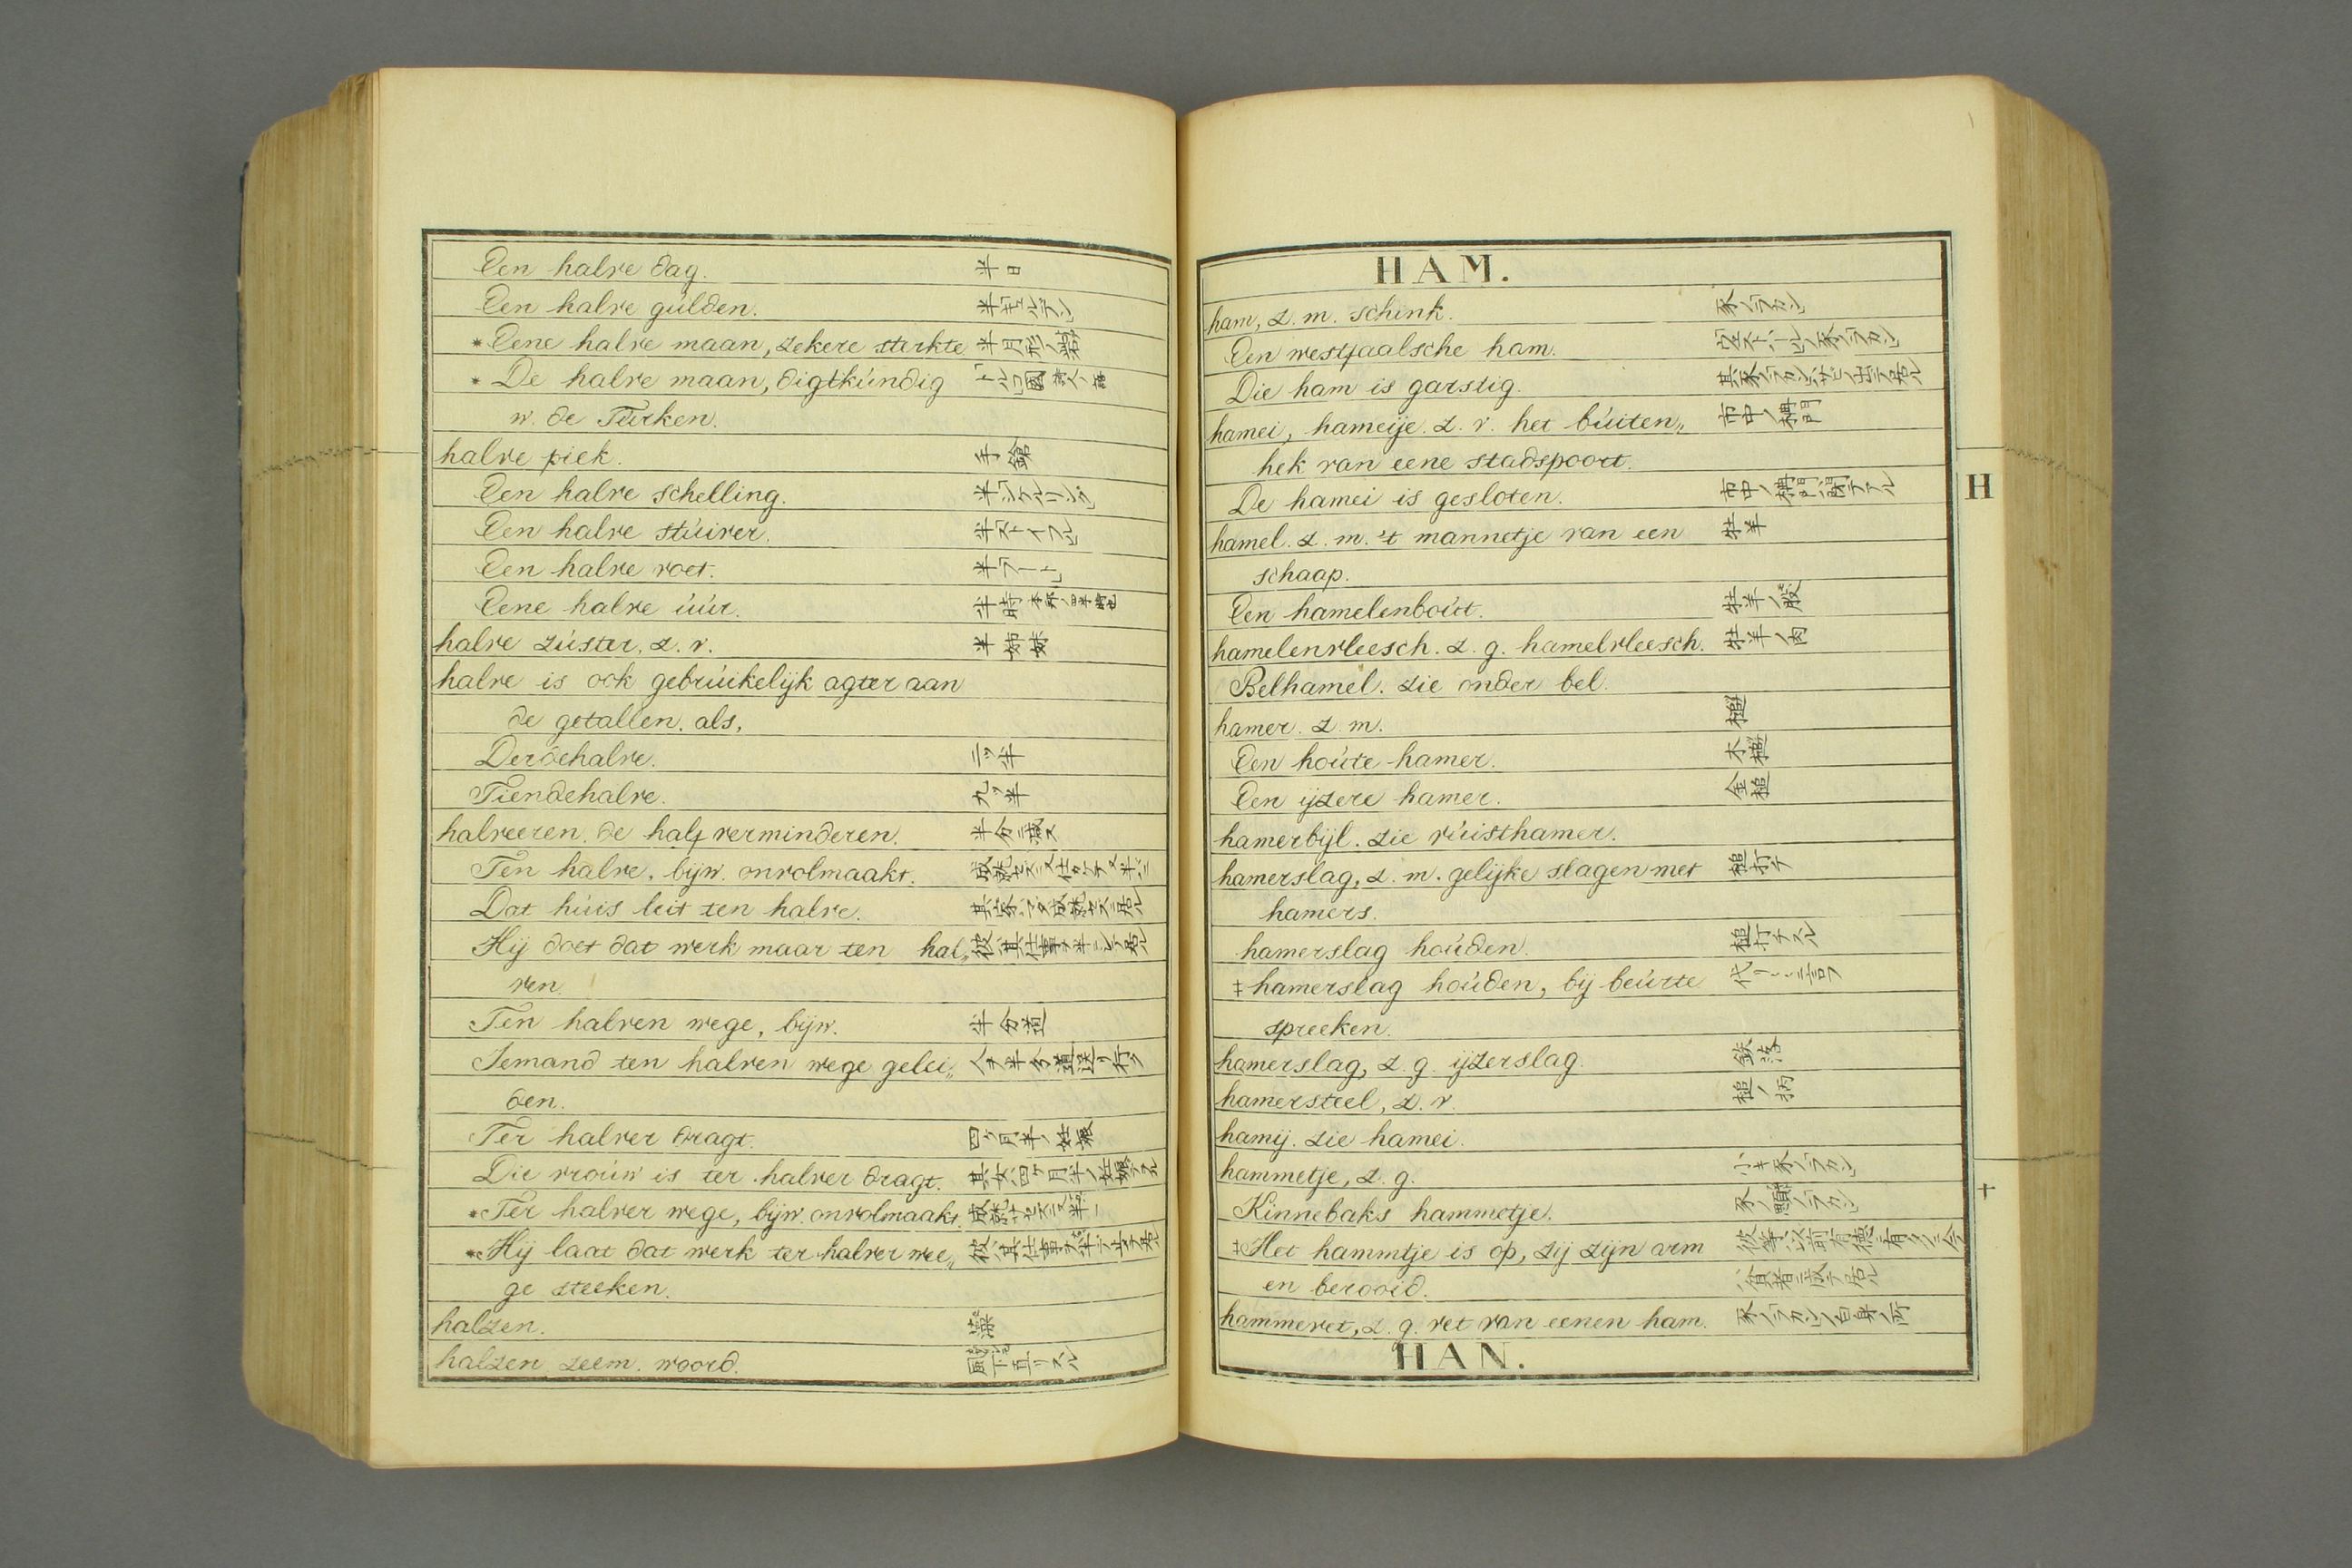 Een halve dag. 半日
Een halve gúlden. 半ギュルデン
*Eene halve maan, zekere sterkte 半月形ノ
*De halve maan, digtkúndig
w. de Túrken.
halve piek. 手鎗
Een halve schelling. 半シケルリング
Een halve stúiver. 半ストイフル
Een halve voet. 半フート
Eene halve úúr. 半時
halve zúster, z. v. 半姉妹
halve is ook gebrúikelijk agter aan
de getallen. als,
Derdehalve. 二ツ半
Tiendehalve. 九ツ半
halveeren. de half verminderen. 半分ニ減ス
Ten halve, bijw. onvolmaakt.
Dat húis leit ten halve.
Hij doet dat werk maar ten hal„
ven
Ten halven wege, bijw. 半分道
Iemand ten halven wege gelei„ 人ヲ半分道送リ行ク
den.
Ter halver dragt. 四ケ月半ノ妊娠
Die vroúw is ter halver dragt.
*Ter halver wege, bijw. onvolmaakt.
*Hij laat dat werk ter halver wee„
ge steeken.
halzen.
halzen zeem. woord.
HAM.
ham, z. m. schink. 豕ノラカン
Een westfaalsche ham.
Die ham is garstig.
hamei, hameije. z. v. het búiten„ 市中ノ構門
hek van eene stadspoort.
De hamei is gesloten.
hamel. z. m. 't mannetje van een 牡羊
schaap.
Een hamelenboút. 牡羊ノ股
hamelenvleesch. z. g. hamelvleesch. 牡羊ノ肉
Belhamel. zie onder bel.
hamer. z. m. 槌
Een hoúte hamer. 木槌
Een ijzere hamer. 金槌
hamerbijl. zie vúisthamer.
hamerslag, z. m. gelijke slagen met 槌打チ
hamers.
hamerslag hoúden. 槌打チスル
‡hamerslag hoúden, bij beúrte
spreeken.
hamerslag, z. g. ijzerslag. 鉄落
hamersteel, z. v. 槌ノ柄
hamij. zie hamei.
hammetje, z. g. 小キ豕ノラカン
Kinnebaks hammetje.
‡Het hammtje is op, zij zijn arm
en berooid.
hammevet, z. g. vet van eenen ham.
HAN.
H